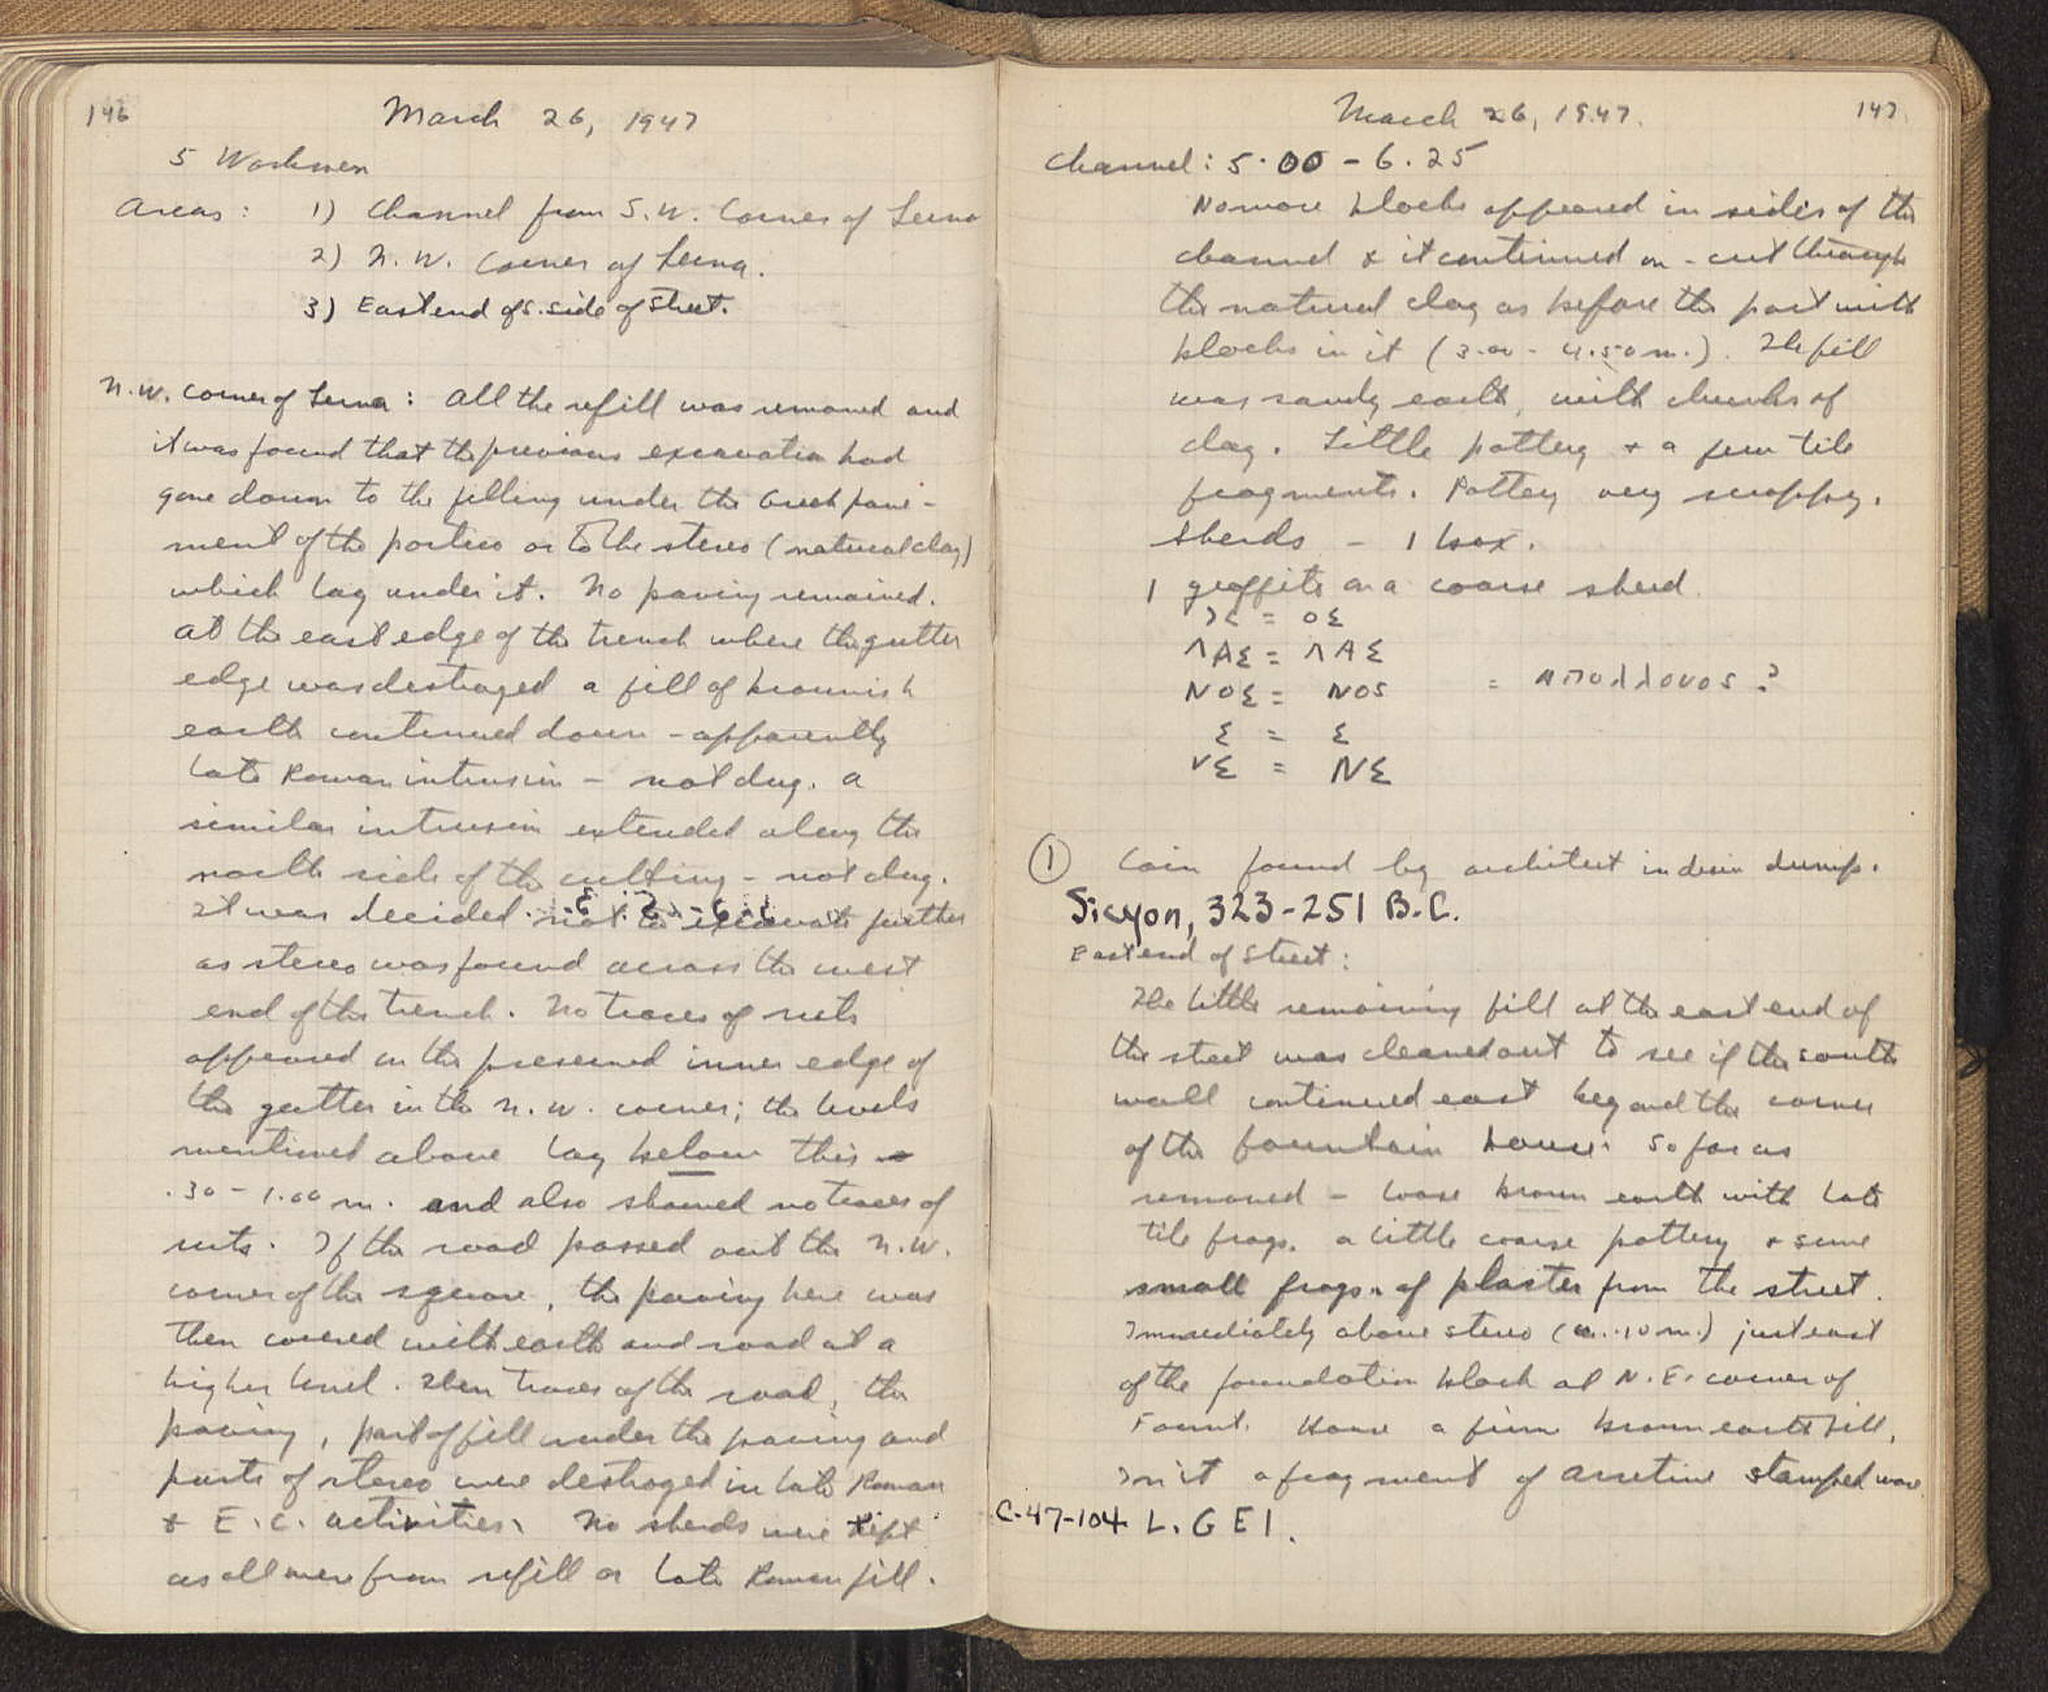 146
March 26, 1947
5 Workmen
Areas: 1) Channel from S.W. Corner of Lerna
2) N.W. Corner of Lerna.
3) East end of S. side of Street.
N.W. corner of Lerna: All the refill was removed and
it was found that the previous excavation had
gone down to the filling under the Greek pave-
ment of the portico or to the stereo (natural clay)
which lay under it. No paving remained.
At the east edge of the trench where the gutter
edge was destroyed a fill of brownish
earth continued down - apparently
late Roman intrusion - not dug. A
similar intrusion extended along the
north side of the cutting - not dug.
It was decided not to excavate further
as stereo was found across the west
end of the trench. No traces of ruts
appeared on the preserved inner edge of
the gutter in the N.W. corner; the levels
mentioned above lay below this
.30 - 1.00 m. and also showed no traces of
ruts. If the road passed out the N.W.
corner of the square, the paving here was
then covered with earth and road at a
higher level. Then traces of the road, the
paving, part of fill under the paving and
parts of stereo were destroyed in late Roman
+ E.C. activities. No sherds were kept
as all were from refill or late Roman fill.
March 26, 1947.
147
Channel: 5.00 - 6.25
No more blocks appeared in sides of the
channel & it continued on - cut through
the natural clay as before the part with
blocks in it (3.00 - 4.50 m.). The fill
was sandy earth, with chunks of
clay. Little pottery + a few tile
fragments. Pottery very scrappy.
Sherds - 1 box.
1 graffito on a coarse sherd.
Ϲ = ΟΣ
ΛΑΣ = ΛΑΣ
ΝΟΣ = ΝΟS = απολλονος?
Σ = Σ
ΝΣ = ΝΣ
① Coin found by architect in dump.
Sicyon, 323-251 B.C.
East end of Street:
The little remaining fill at the east end of
the street was cleaned out to see if the south
wall continued east beyond the corner
of the fountain house. So far as
removed - loose brown earth with late
tile frags. a little coarse pottery + some
small frags. of plaster from the street.
Immediately above stereo (.10 m.) just east
of the foundation block at N.E. corner of
Fount. House a firm brown earth fill,
In it a fragment of Arretine stamped ware
C-47-104 L. GEI.